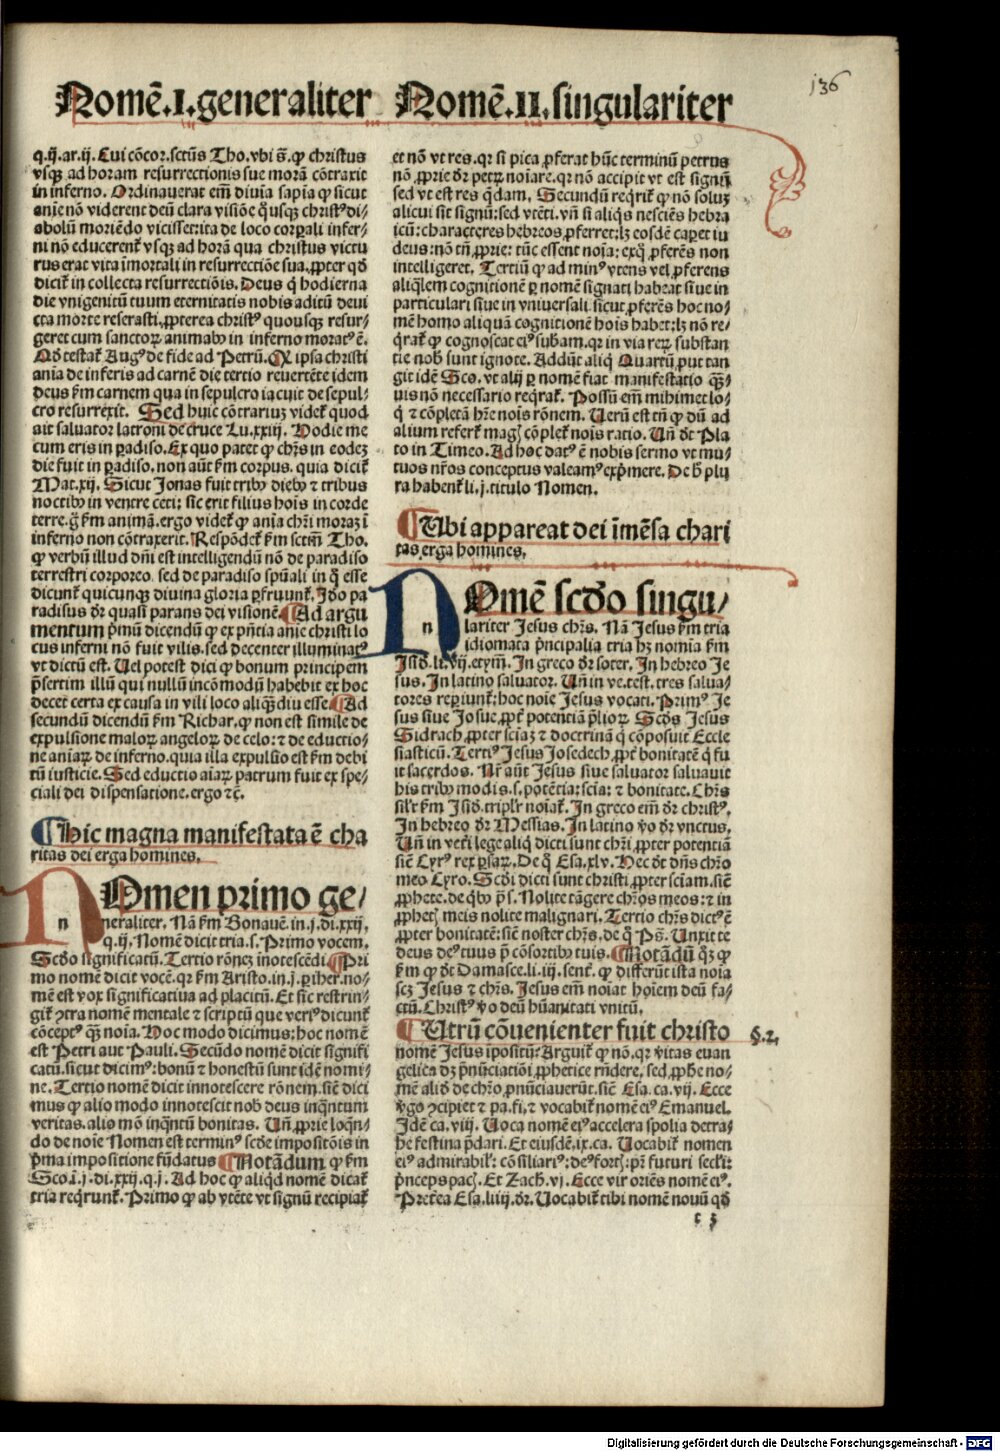 136
Nomē.I.generaliter
q.ij.ar.ij. Cui cōcor.sctūs Tho.vbi s̄.ꝙ christus
vsqꝫ ad horam resurrectionis sue morā cōtraxit
in inferno. Ordinauerat em̄ diuīa sapīa ꝙ sicut
anīe nō viderent deū clara visiōe q̄usqꝫ christꝰ di-
abolū moriēdo vicisset: ita de loco corꝑali infer-
ni nō educerenſ vsqꝫ ad horā qua christus victu
rus erat vita īmortali in resurrectiōe sua. ꝓpter qđ
diciſ in collecta resurrectiōis. Deus q̇ hodierna
die vnigenitū tuum eternitatis nobis aditū deui
cta morte reserasti. ꝓpterea christꝰ quousqꝫ resur-
geret cum sanctoꝝ animabꝰ in inferno moratꝰ ē.
Qđ testaſ Augꝰ de fide ad Petrū. Qꝫ ipsa christi
anīa de inferis ad carnē die tertio reuertēte idem
deus ẜm carnem qua in sepulcro iacuit de sepul-
cro resurrexit. Sed huic cōtrariuꝫ videſ quod
ait saluator latroni de cruce Lu.xxiij. Hodie me
cum eris in ꝑadiso. Ex quo patet ꝙ chrs̄ in eodeꝫ
die fuit in ꝑadiso. non aūt ẜm corpus. quia diciſ
Mat.xij. Sicut Jonas fuit tribꝰ diebꝰ ⁊ tribus
noctibꝰ in ventre ceti: sic erit filius hoīs in corde
terre. ḡ ẜm animā. ergo videſ ꝙ anīa chrī moraꝫ ī
inferno non cōtraxerit. Respōdeſ ẜm sctm̄ Tho.
ꝙ verbū illud dn̄i est intelligendū nō de paradiso
terrestri corporeo. sed de paradiso spūali in q̊ esse
dicunſ quicunqꝫ diuina gloria ꝑfruunſ. Iđo pa
radisus dr̄ quasi parans dei visionē. Ad argu
mentum p̄mū dicendū ꝙ ex pn̄tia anīe christi lo
cus inferni nō fuit vilis. sed decenter illuminatꝰ
vt dictū est. Uel potest dici ꝙ bonum principem
p̄sertim illū qui nullū incōmodū habebit ex hoc
decet certa ex causa in vili loco aliqꝫdiu esse. Ad
secundū dicendū ẜm Richar. ꝙ non est simile de
expulsione maloꝝ angeloꝝ de celo: ⁊ de eductio-
ne anīaꝝ de inferno. quia illa expulsio est ẜm debi
tū iusticie. Sed eductio aīaꝝ patrum fuit ex spe-
ciali dei dispensatione. ergo ⁊c̄.
Hic magna manifestata ē cha
ritas dei erga homines.
n
NOmen primo ge-
neraliter. Nā ẜm Bonauē. in.j.di.xxij.
q.ij. Nomē dicit tria. s. Primo vocem.
Scđo significatū. Tertio rōneꝫ īnotescēdi. Pri
mo nomē dicit vocē. qr ẜm Aristo. in.j. ꝑiher. no-
mē est vox significatiua ad placitū. Et sic restrin-
giſ ꝯtra nomē mentale ⁊ scriptū que veriꝰ dicunſ
cōceptꝰ qꝫ noīa. Hoc modo dicimus: hoc nomē
est Petri aut Pauli. Secūdo nomē dicit signifi
catū. sicut dicimꝰ: bonū ⁊ honestū sunt idē nomi-
ne. Tertio nomē dicit innotescere rōnem. sic̄ dici
mus ꝙ alio modo innotescit nob̄ deus inq̄ntum
veritas. alio mō inq̄ntū bonitas. Un̄ ꝓprie loqn̄-
do de noīe Nomen est terminꝰ scđe impositōis in
p̄ma impositione fūdatus Notādum ꝙ ẜm
Scotū.j.di.xxij.q.j. Ad hoc ꝙ aliqđ nomē dicaſ
tria reqrunſ. Primo ꝙ ab vtēte vt signū recipiaſ
Nomē.II.singulariter
et nō vt res. qr si pica ꝓferat hūc terminū petrus
nō ꝓprie dr̄ petrꝫ noīare. qr nō accipit vt est signū
sed vt est res q̄dam. Secundū reqriſ ꝙ nō soluꝫ
alicui sit signū: sed vtēti. vn̄ si aliqs nesciēs hebra
icū: characteres hebreos ꝓferret: lꝫ eosdē caꝑet iu
deus: nō tn̄ ꝓprie: tūc essent noīa: exq̊ ꝓferēs non
intelligeret. Tertiū ꝙ ad minꝰ vtens vel ꝓferens
aliqlem cognitionē ꝑ nomē signati habeat siue in
particulari siue in vniuersali. sicut ꝓferēs hoc no-
mē homo aliquā cognitionē hoīs habet: lꝫ nō re-
q̄raſ ꝙ cognoscat eiꝰ subam. qr in via reꝝ substan
tie nob̄ sunt ignote. Addūt aliq̇ Quartū. put tan
git idē Sco. vt alij ꝑ nomē fiat manifestatio qꝫ-
uis nō necessario reqraſ. Possū em̄ mihimet lo-
q̇ ⁊ cōpletā hr̄e noīs rōnem. Uerū est tn̄ ꝙ dū ad
alium referſ magꝭ cōpleſ noīs ratio. Un̄ dt̄ Pla
to in Timeo. Ad hoc datꝰ ē nobis sermo vt mu-
tuos nr̄os conceptus valeamꝰ exp̄mere. De h̊ plu
ra habenſ li.j.titulo Nomen.
Ubi appareat dei īmēsa chari
tas erga homines.
n
NOmē scđo singu-
lariter Jesus chrs̄. Nā Jesus ẜm tria
idiomata p̄ncipalia tria hꝫ nomīa ẜm
Isid. li.vij. etym̄. In greco dr̄ soter. In hebreo Je
sus. In latino saluator. Un̄ in ve.test. tres salua-
tores reꝑiunſ: hoc noīe Jesus vocati. Primꝰ Je
sus siue Josue. ꝓpt̄ potentiā p̄lioꝝ. Scđs Jesus
Sidrach. ꝓpter sciāꝫ ⁊ doctrinā q̄ cōposuit Eccle
siasticū. Tertiꝰ Jesus Josedech. ꝓpt̄ bonitatē q̇ fu
it sacerdos. Nr̄ aūt Jesus siue saluator saluauit
his tribꝰ modis. s. potētia: scīa: ⁊ bonitate. Chrs̄
silr̄ ẜm Isid. triplr̄ noīaſ. In greco em̄ dr̄ christꝰ.
In hebreo dr̄ Messias. In latino v̊o dr̄ vnctus.
Un̄ in vet̄i lege aliq̇ dicti sunt chrī. ꝓpter potentiā
sic̄ Cyrꝰ rex ꝑsaꝝ. De q̊ Esa.xlv. Hec dt̄ dn̄s chrō
meo Cyro. Scđi dicti sunt christi ꝓpter sciam. sic̄
ꝓphete. de qbꝰ ps̄. Nolite tāgere chrōs meos: ⁊ in
ꝓphetꝭ meis nolite malignari. Tertio chrs̄ dictꝰ ē
ꝓpter bonitatē: sic̄ noster chrs̄. de q̊ Ps̄. Unxit te
deus deꝰ tuus p̄ cōsortibꝰ tuis. Notādū q̊ꝫ ꝙ
ẜm ꝙ dt̄ Damasce. li.iij. sent̄. ꝙ differūt ista noīa
scꝫ Jesus ⁊ chrs̄. Jesus em̄ noīat hoīem deū fa-
ctū. Christꝰ v̊o deū hūanitati vnitū.
Utrū cōuenienter fuit christo
§.2.
nomē Jesus īpositū? Arguiſ ꝙ nō. qr v̄itas euan
gelica dꝫ p̄nūciatiōi ꝓphetice rn̄dere. sed. ꝓph̄e no-
mē aliđ de chrō p̄nūciauerūt. sic̄ Esa. ca.vij. Ecce
v̄go ꝯcipiet ⁊ pa.fi. ⁊ vocabiſ nomē eiꝰ Emanuel.
Idē ca.viij. Uoca nomē eiꝰ accelera spolia detra-
he festina p̄dari. Et eiusdē.ix.ca. Uocabiſ nomen
eiꝰ admirabil̄: cōsiliariꝰ: deꝰ fortꝭ: pr̄ futuri secl̄i:
p̄nceps pacꝭ. Et Zach. vj. Ecce vir oriēs nomē eiꝰ.
Pret̄ea Esa.lxiij. dr̄. Uocabiſ tibi nomē nouū qđ
c 3
Digitalisierung gefördert durch die Deutsche Forschungsgemeinschaft - DFG